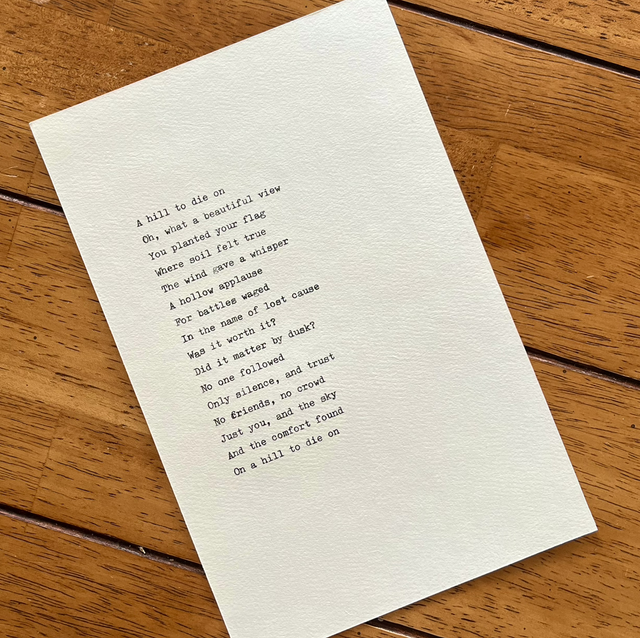 A hill to die on
Oh, what a beautiful view
You planted your flag
Where soil felt true
The wind gave a whisper
A hollow applause
For battles waged
In the name of lost cause
Was it worth it?
Did it matter by dusk?
No one followed
Only silence, and trust
No friends, no crowd
Just you, and the sky
And the comfort found
On a hill to die on